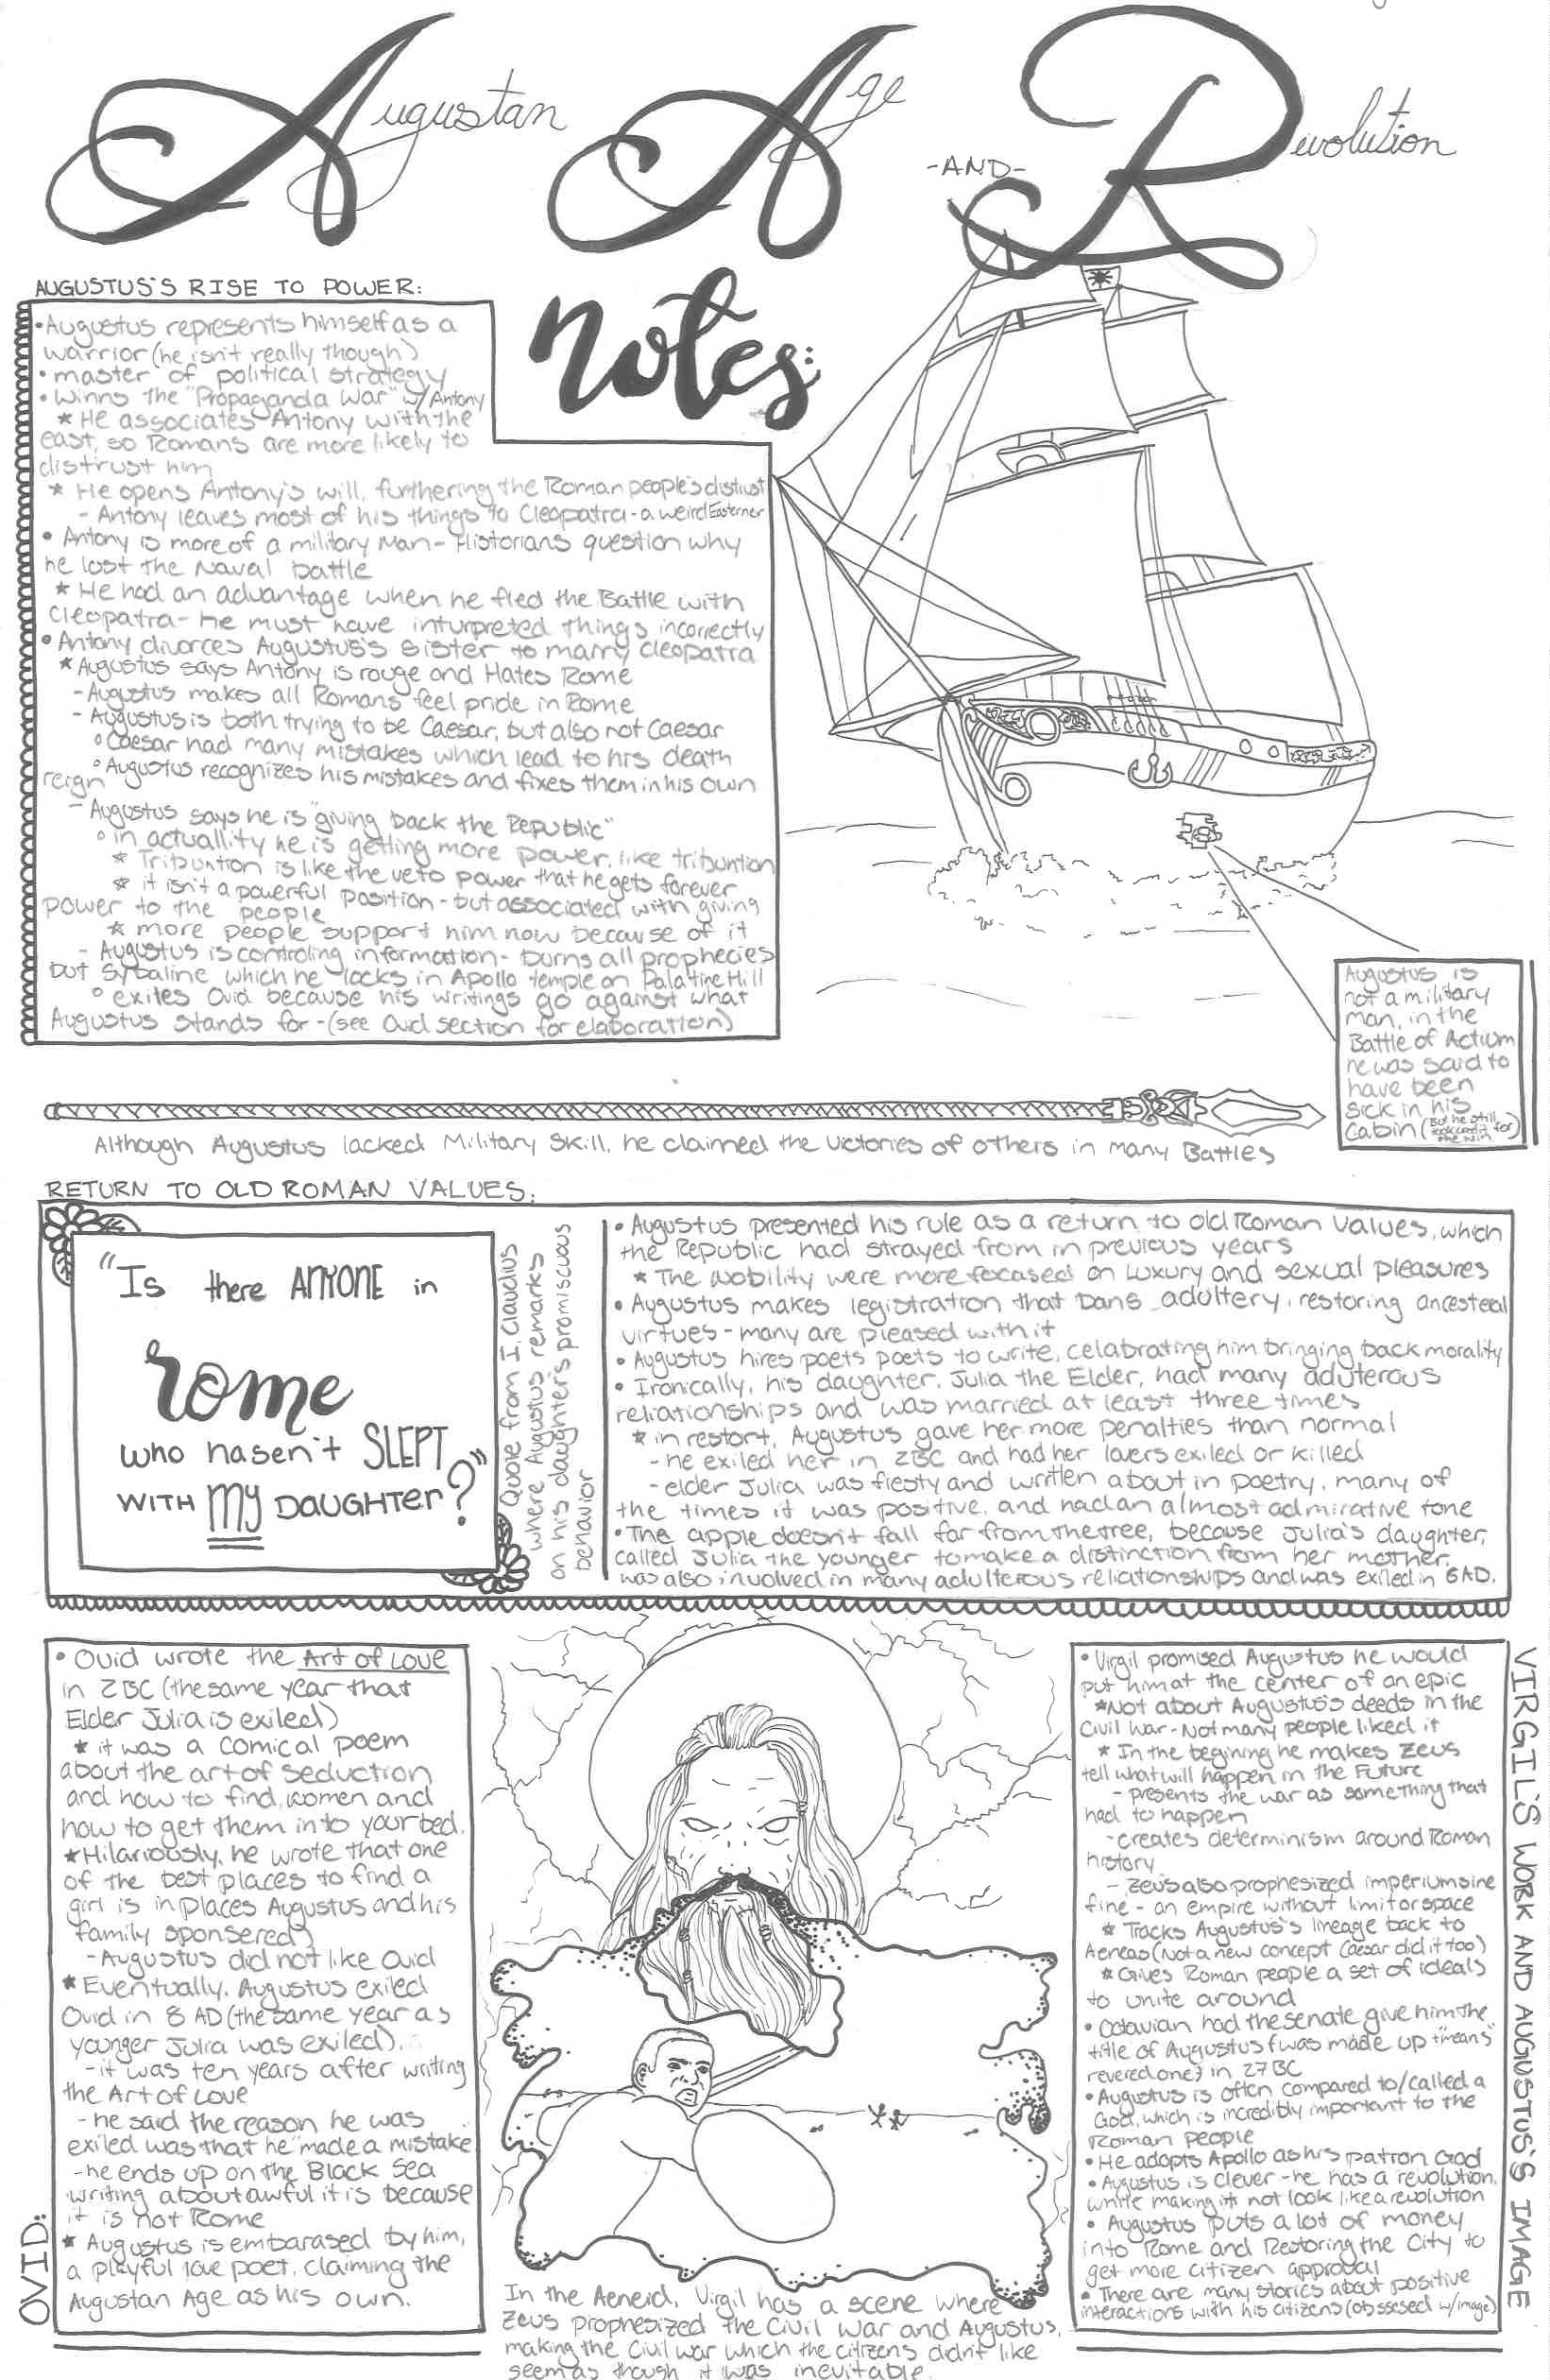 Augustan Age
-AND-
Revolution
notes:
AUGUSTUS'S RISE TO POWER:
•Augustus represents himself as a
warrior (he isn't really though)
• master of political strategy
• Winns the "Propaganda War" w/ Antony
* He associates Antony with the
east, so Romans are more likely to
distrust him
* He opens Antony's will, furthering the Roman people's distrust
- Antony leaves most of his things to Cleopatra - a weird Easterner
• Antony is more of a military man - Historians question why
he lost the Naval battle
* He had an advantage when he fled the Battle with
Cleopatra - he must have inturpreted things incorrectly
• Antony divorces Augustus's sister to marry Cleopatra
* Augustus says Antony is rouge and Hates Rome
- Augustus makes all Romans feel pride in Rome
- Augustus is both trying to be Caesar, but also not Caesar
° Caesar had many mistakes which lead to his death
° Augustus recognizes his mistakes and fixes them in his own
reign
- Augustus says he is "giving back the Republic"
° in actuallity he is getting more power, like tribuntion
* Tribuntion is like the veto power that he gets forever
* it isn't a powerful position - but associated with giving
power to the people
* more people support him now because of it
- Augustus is controling information - burns all prophecies
but Sybaline which he locks in Apollo temple on Palatine Hill
° exiles Ovid because his writings go against what
Augustus stands for - (see Ovid section for elaboration)
Augustus is
not a military
man, in the
Battle of Actium
he was said to
have been
sick in his
cabin (But he still
took credit for
the win)
Although Augustus lacked Military Skill, he claimed the victories of others in many Battles
RETURN TO OLD ROMAN VALUES:
"Is there ANYONE in
rome
who hasen't SLEPT
WITH my DAUGHTER?"
Quote from I, Claudius
where Augustus remarks
on his daughter's promiscuous
behavior
• Augustus presented his rule as a return to old Roman values, which
the Republic had strayed from in previous years
* The nobility were more focased on Luxury and sexual pleasures
• Augustus makes legistration that bans adultery, restoring ancesteal
virtues - many are pleased with it
• Augustus hires poets poets to write, celabrating him bringing back morality
• Ironically, his daughter, Julia the Elder, had many aduterous
reliationships and was married at least three times
* in restort, Augustus gave her more penalties than normal
- he exiled her in 2BC and had her lovers exiled or killed
- elder Julia was fiesty and written about in poetry, many of
the times it was positive, and had an almost admirative tone
• The apple doesn't fall far from the tree, because Julia's daughter,
called Julia the younger to make a distinction from her mother,
was also involved in many adulterous reliationships and was exiled in 8AD.
OVID:
• Ovid wrote the Art of Love
in 2 BC (the same year that
Elder Julia is exiled)
* it was a comical poem
about the art of seduction
and how to find women and
how to get them into your bed.
* Hilariously, he wrote that one
of the best places to find a
girl is in places Augustus and his
family sponsered)
- Augustus did not like Ovid
* Eventually, Augustus exiled
Ovid in 8 AD (the same year as
younger Julia was exiled).
- it was ten years after writing
the Art of Love
- he said the reason he was
exiled was that he "made a mistake
- he ends up on the Black Sea
writing about awful it is because
it is not Rome
* Augustus is embarased by him,
a playful love poet, claiming the
Augustan Age as his own.
In the Aeneid, Virgil has a scene where
Zeus prophesized the Civil War and Augustus,
making the Civil war which the citizens didn't like
seem as though it was inevitable.
VIRGIL'S WORK AND AUGUSTUS'S IMAGE
• Virgil promised Augustus he would
put him at the center of an epic
* Not about Augustus's deeds in the
Civil War - Not many people liked it
* In the begining he makes Zeus
tell what will happen in the Future
- presents the war as something that
had to happen
- creates determinism around Roman
history
- Zeus also prophesized imperium sine
fine - an empire without limit or space
* Tracks Augustus's lineage back to
Aeneas (Not a new concept Caesar did it too)
* Gives Roman people a set of ideals
to unite around
• Octavian had the senate give him the
title of Augustus (was made up + "means"
revered one) in 27 BC
• Augustus is often compared to/called a
God, which is incredibly important to the
Roman people
• He adopts Apollo as his patron God
• Augustus is clever - he has a revolution,
while making it not look like a revolution
• Augustus puts a lot of money
into Rome and Restoring the City to
get more citizen approval
• There are many stories about positive
interactions with his citizens (obssesed w/image)